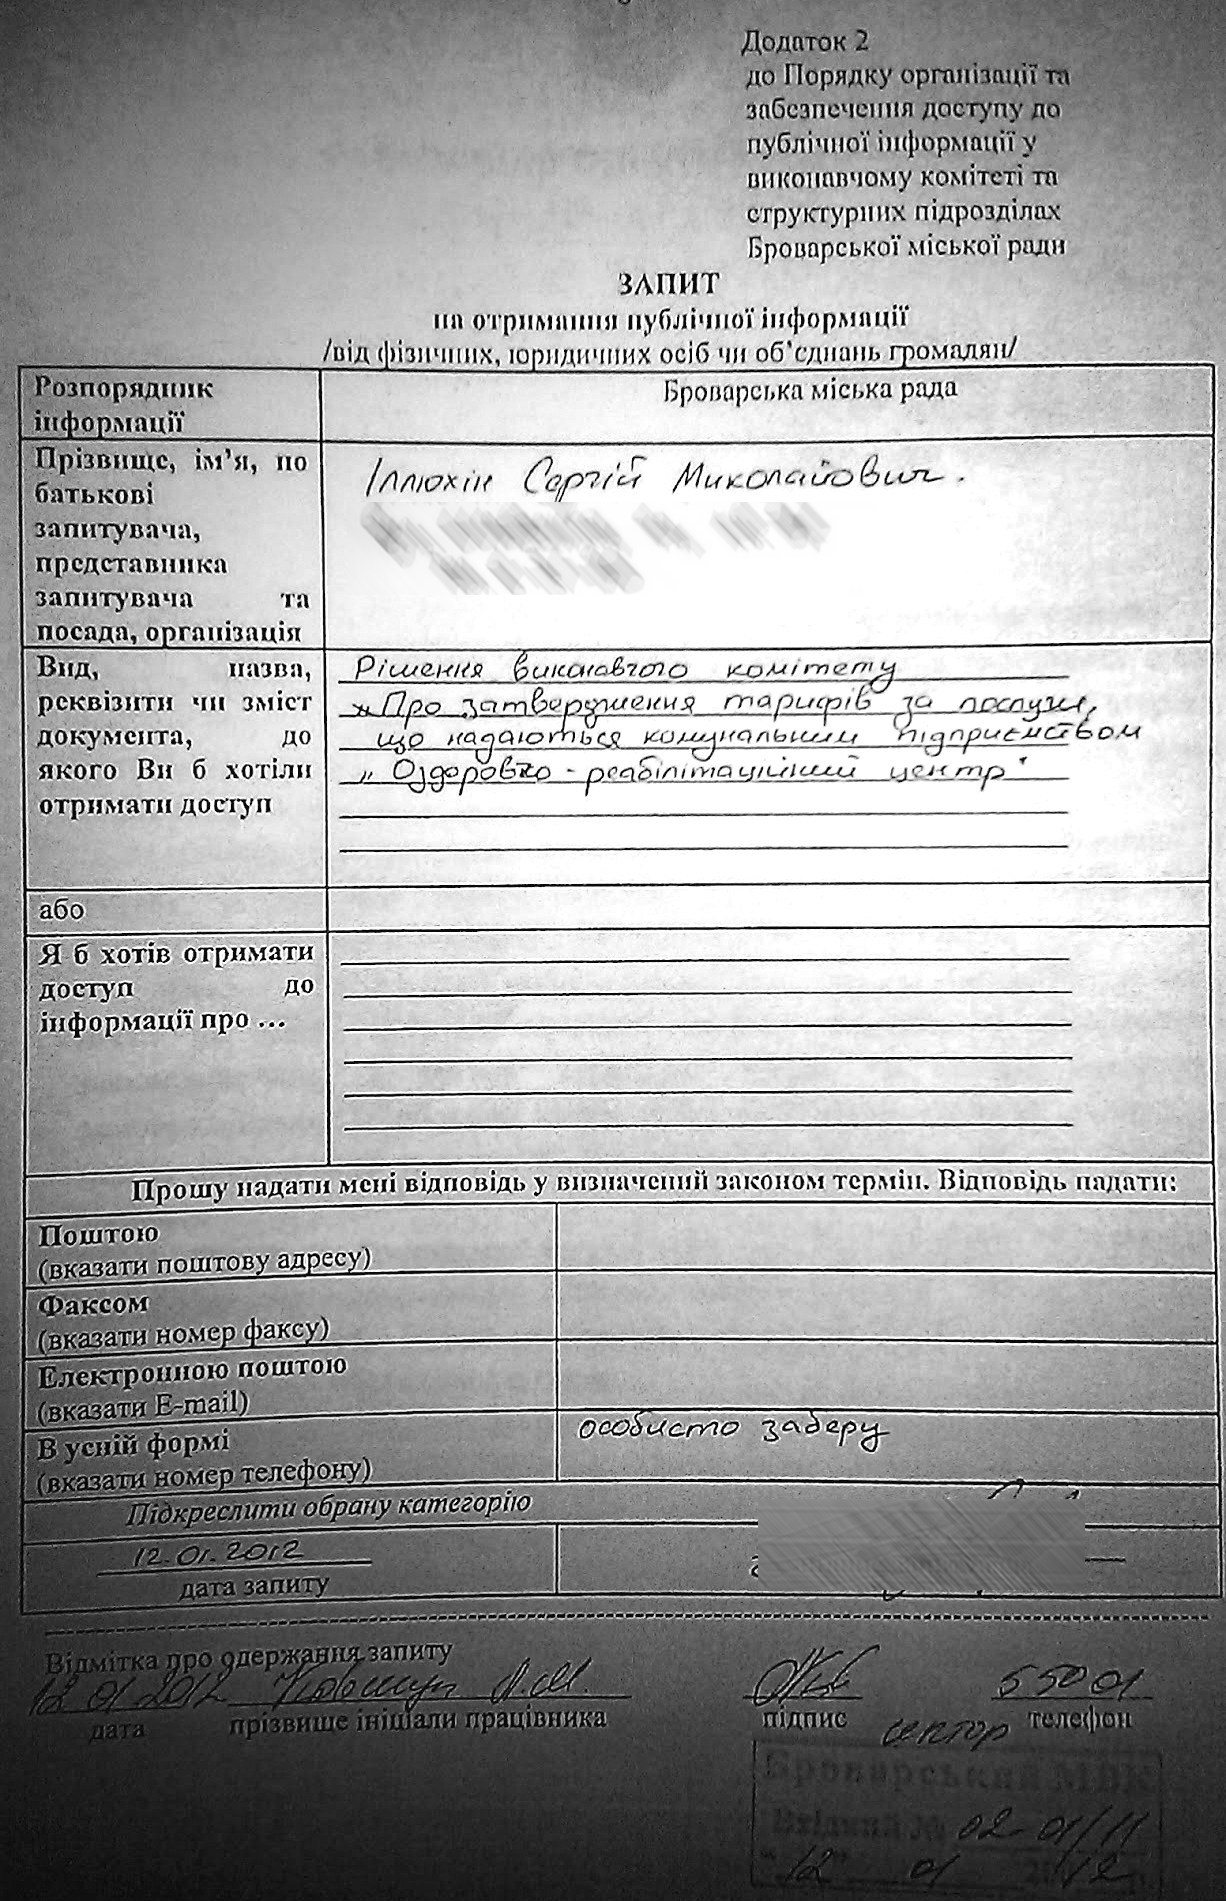 Додаток 2
до Порядку організації та
забезпечення доступу до
публічної інформації у
виконавчому комітеті та
структурних підрозділах
Броварської міської ради
ЗАПИТ
на отримання публічної інформації
/від фізичних, юридичних осіб чи об'єднань громадян/
Розпорядник
інформації
Броварська міська рада
Прізвище, ім'я, по
батькові
запитувача,
представника
запитувача та
посада, організація
Іллюхін Сергій Миколайович.
Вид, назва,
реквізити чи зміст
документа, до
якого Ви б хотіли
отримати доступ
Рішення виконавчого комітету
„Про затвердження тарифів за послуги,
що надаються комунальним підприємством
„Оздоровчо-реабілітаційний центр"
або
Я б хотів отримати
доступ до
інформації про ...
Прошу надати мені відповідь у визначений законом термін. Відповідь надати:
Поштою
(вказати поштову адресу)
Факсом
(вказати номер факсу)
Електронною поштою
(вказати E-mail)
В усній формі
(вказати номер телефону)
особисто заберу
Підкреслити обрану категорію
12.01.2012
дата запиту
Відмітка про одержання запиту
12 01 2012 55001
дата прізвище ініціали працівника підпис телефон
сектор
Броварський МВК
Вхідний № 02-01/11
"12" 01 2012